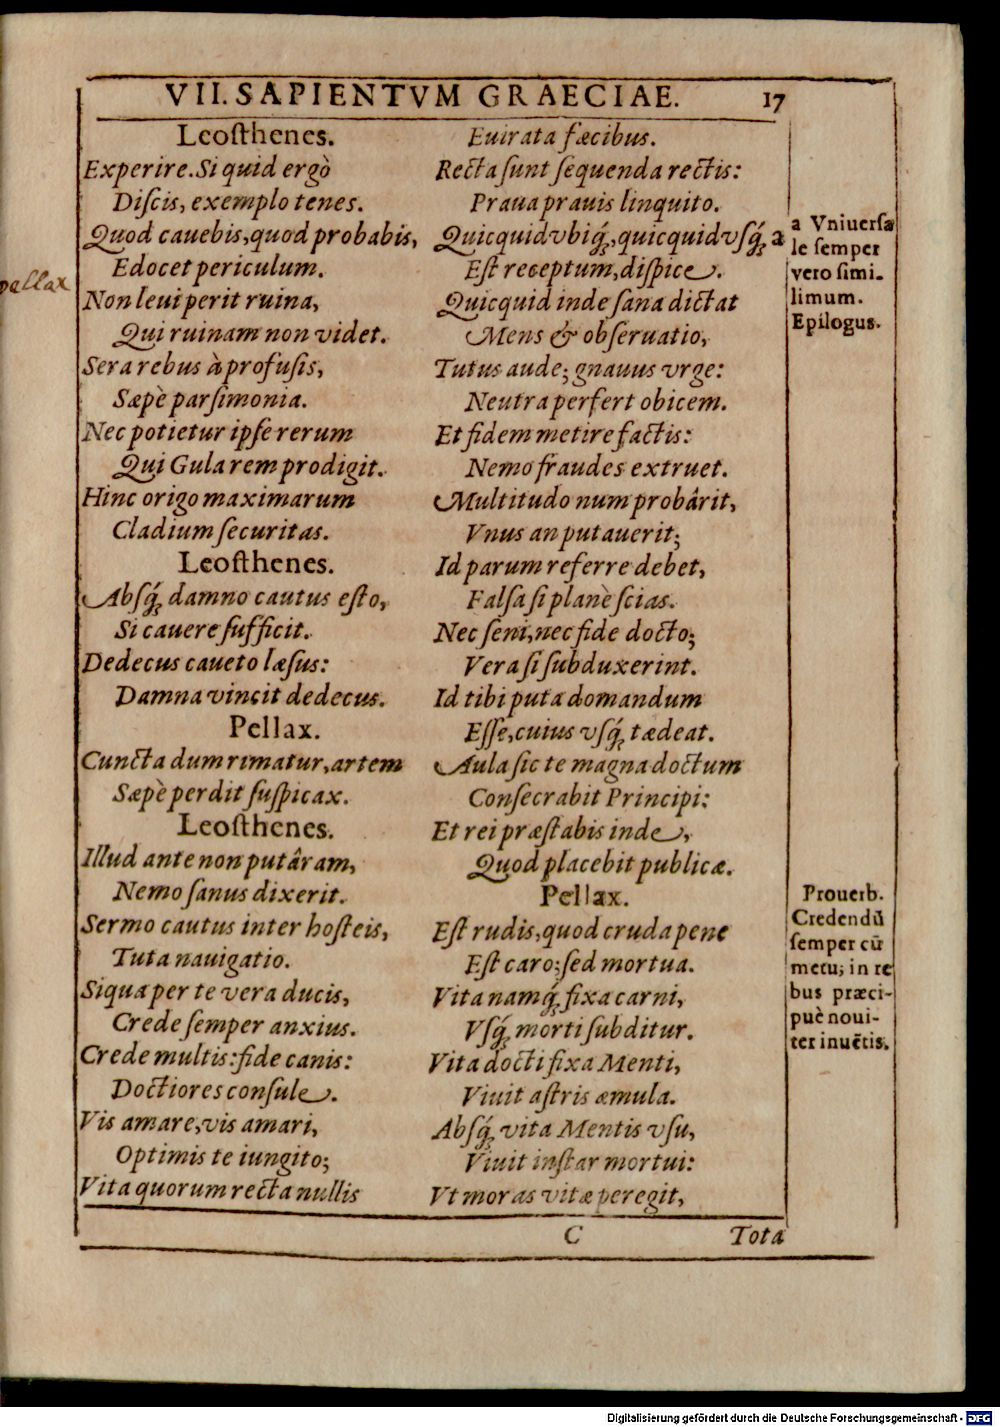 VII. SAPIENTVM GRAECIAE. 17
Leosthenes.
Experire. Si quid ergò
Discis, exemplo tenes.
Quod cauebis, quod probabis,
Edocet periculum.
pellax
Non leui perit ruina,
Qui ruinam non videt.
Sera rebus à profusis,
Sæpè parsimonia.
Nec potietur ipse rerum
Qui Gula rem prodigit.
Hinc origo maximarum
Cladium securitas.
Leosthenes.
Absq́; damno cautus esto,
Si cauere sufficit.
Dedecus caueto læsus:
Damna vincit dedecus.
Pellax.
Cuncta dum rimatur, artem
Sæpè perdit suspicax.
Leosthenes.
Illud ante non putâram,
Nemo sanus dixerit.
Sermo cautus inter hosteis,
Tuta nauigatio.
Siqua per te vera ducis,
Crede semper anxius.
Crede multis: fide canis:
Doctiores consule.
Vis amare, vis amari,
Optimis te iungito;
Vita quorum recta nullis
Euirata fæcibus.
Recta sunt sequenda rectis:
Praua prauis linquito.
Quicquid vbiq́;, quicquid vsq́; a
Est receptum, dispice.
Quicquid inde sana dictat
Mens & obseruatio,
Tutus aude; gnauus vrge:
Neutra perfert obicem.
Et fidem metire factis:
Nemo fraudes extruet.
Multitudo num probârit,
Vnus an putauerit;
Id parum referre debet,
Falsa si planè scias.
Nec seni, nec fide docto;
Vera si subduxerint.
Id tibi puta domandum
Esse, cuius vsq́; tædeat.
Aula sic te magna doctum
Consecrabit Principi:
Et rei præstabis inde,
Quod placebit publicæ.
Pellax.
Est rudis, quod cruda pene
Est caro; sed mortua.
Vita namq́; fixa carni,
Vsq́; morti subditur.
Vita docti fixa Menti,
Viuit astris æmula.
Absq́; vita Mentis vsu,
Viuit instar mortui:
Vt moras vitæ peregit,
a Vniuersa
le semper
vero simi-
limum.
Epilogus.
Prouerb.
Credendū
semper cū
metu; in re
bus præci-
puè noui-
ter inuētis.
C Tota
Digitalisierung gefördert durch die Deutsche Forschungsgemeinschaft - DFG